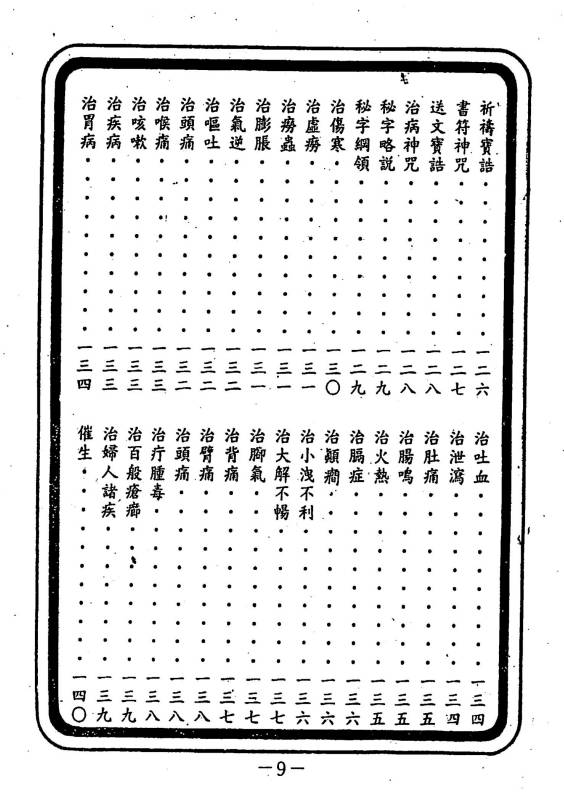 祈禱寶誥・・・・・・・・・・・一二六
書符神咒・・・・・・・・・・・一二七
送文寶誥・・・・・・・・・・・一二八
治病神咒・・・・・・・・・・・一二八
秘字略説・・・・・・・・・・・一二九
秘字綱領・・・・・・・・・・・一二九
治傷寒・・・・・・・・・・・・一三〇
治虛癆・・・・・・・・・・・・一三一
治癆蟲・・・・・・・・・・・・一三一
治膨脹・・・・・・・・・・・・一三一
治氣逆・・・・・・・・・・・・一三二
治嘔吐・・・・・・・・・・・・一三二
治頭痛・・・・・・・・・・・・一三二
治喉痛・・・・・・・・・・・・一三三
治咳嗽・・・・・・・・・・・・一三三
治疾病・・・・・・・・・・・・一三三
治胃病・・・・・・・・・・・・一三四
治吐血・・・・・・・・・・一三四
治泄瀉・・・・・・・・・・一三四
治肚痛・・・・・・・・・・一三五
治腸鳴・・・・・・・・・・一三五
治火熱・・・・・・・・・・一三五
治膈症・・・・・・・・・・一三六
治顛癇・・・・・・・・・・一三六
治小洩不利・・・・・・・・一三六
治大解不暢・・・・・・・・一三七
治腳氣・・・・・・・・・・一三七
治背痛・・・・・・・・・・一三七
治臂痛・・・・・・・・・・一三八
治頭痛・・・・・・・・・・一三八
治疔腫毒・・・・・・・・・一三八
治百般瘡癤・・・・・・・・一三九
治婦人諸疾・・・・・・・・一三九
催生・・・・・・・・・・・一四〇
—9—